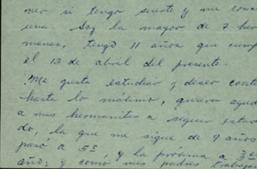 ner si tengo suerte y me
una. Soy la mayor de 7 her
manos, tengo 11 años que cump
el 13 de abril del presente.
Me gusta estudiar y deseo
hasta lo máximo, quiero ayud
a mis hermanitos a seguir
do, la que me sigue de 9 años
pasó a 5º y la próxima a 3er
año; y como mis padres trabajan